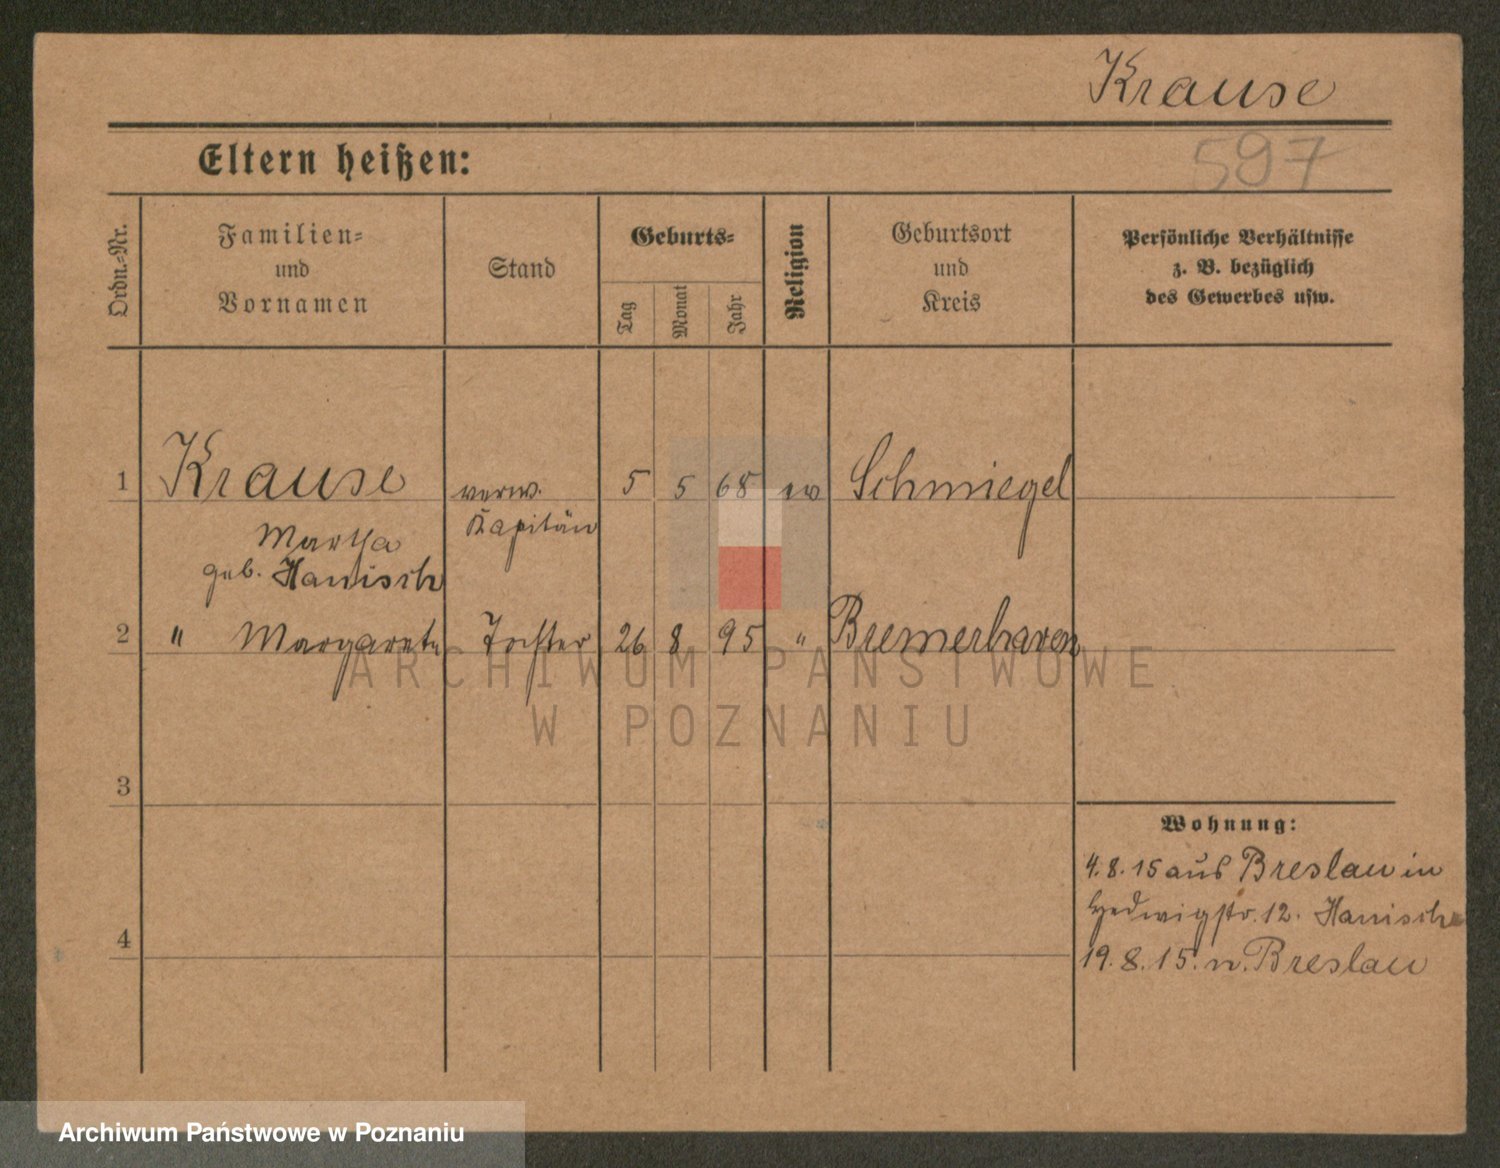 Krause
597
Eltern heißen:
Ordn.-Nr.
Familien-
und
Vornamen
Stand
Geburts-
Tag
Monat
Jahr
Religion
Geburtsort
und
Kreis
Persönliche Verhältnisse
z. B. bezüglich
des Gewerbes usw.
1 Krause verw. 5 5 68 ev Schmiegel
Kapitän
Martha
geb. Hanisch
2 " Margarete Tochter 26 8 95 " Bremerhaven
ARCHIWUM PAŃSTWOWE
W POZNANIU
3
Wohnung:
4.8.15 aus Breslau in
Hedwigstr. 12. Hanisch
4
19.8.15. n. Breslau
Archiwum Państwowe w Poznaniu